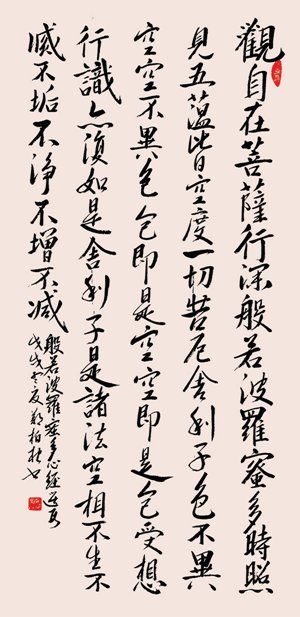 觀自在菩薩行深般若波羅蜜多時照
見五蘊皆空度一切苦厄舍利子色不異
空空不異色色即是空空即是色受想
行識亦復如是舍利子是諸法空相不生不
滅不垢不淨不增不減
般若波羅蜜多心經選
戊戌之夏